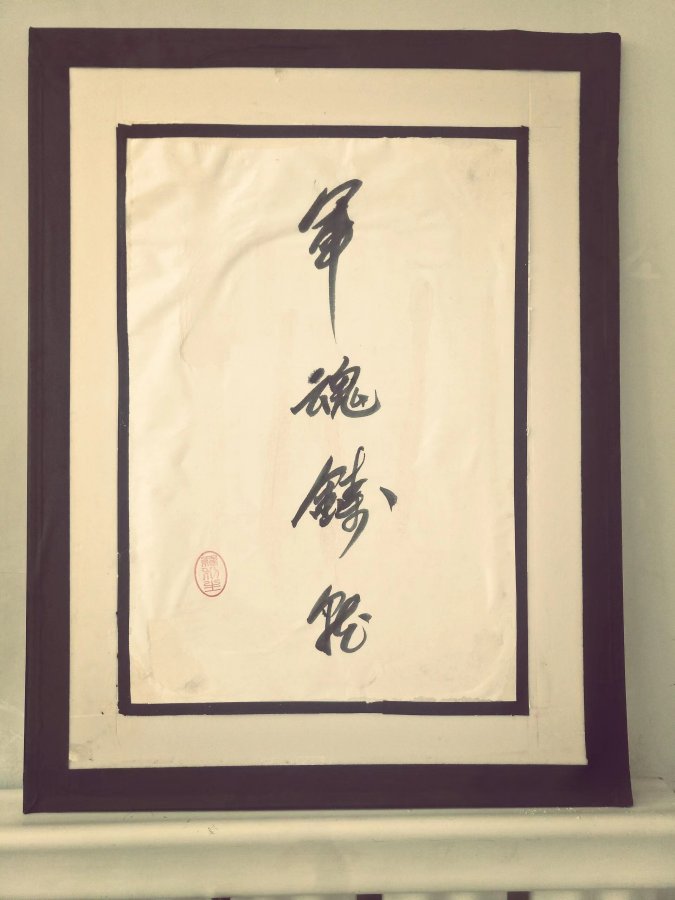 軍魂鑄就